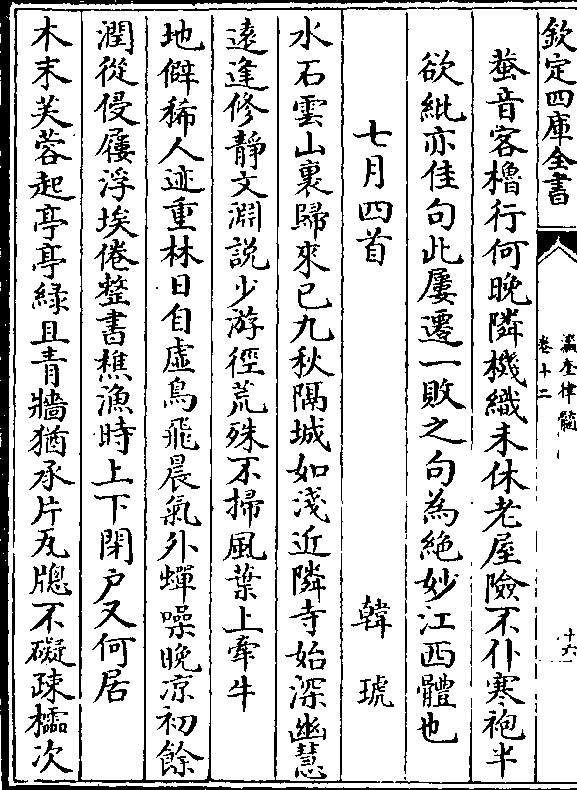 欽定四庫全書
瀛奎律髓
卷十二
十六
蛬音客櫓行何晚隣機織未休老屋險不仆寒袍半
欲紕亦佳句此屢遷一敗之句為絶妙江西體也
七月四首 韓琥
水石雲山裏歸來已九秋隔城如淺近隣寺始深幽慧
逺逢修靜文淵説少游徑荒殊不掃風葉上牽牛
地僻稀人迹重林日自虛鳥飛晨氣外蟬噪晚凉初餘
潤從侵屨浮埃倦整書樵漁時上下閉户又何居
木末芙蓉起亭亭緑且青牆猶承片瓦牕不礙疎櫺次